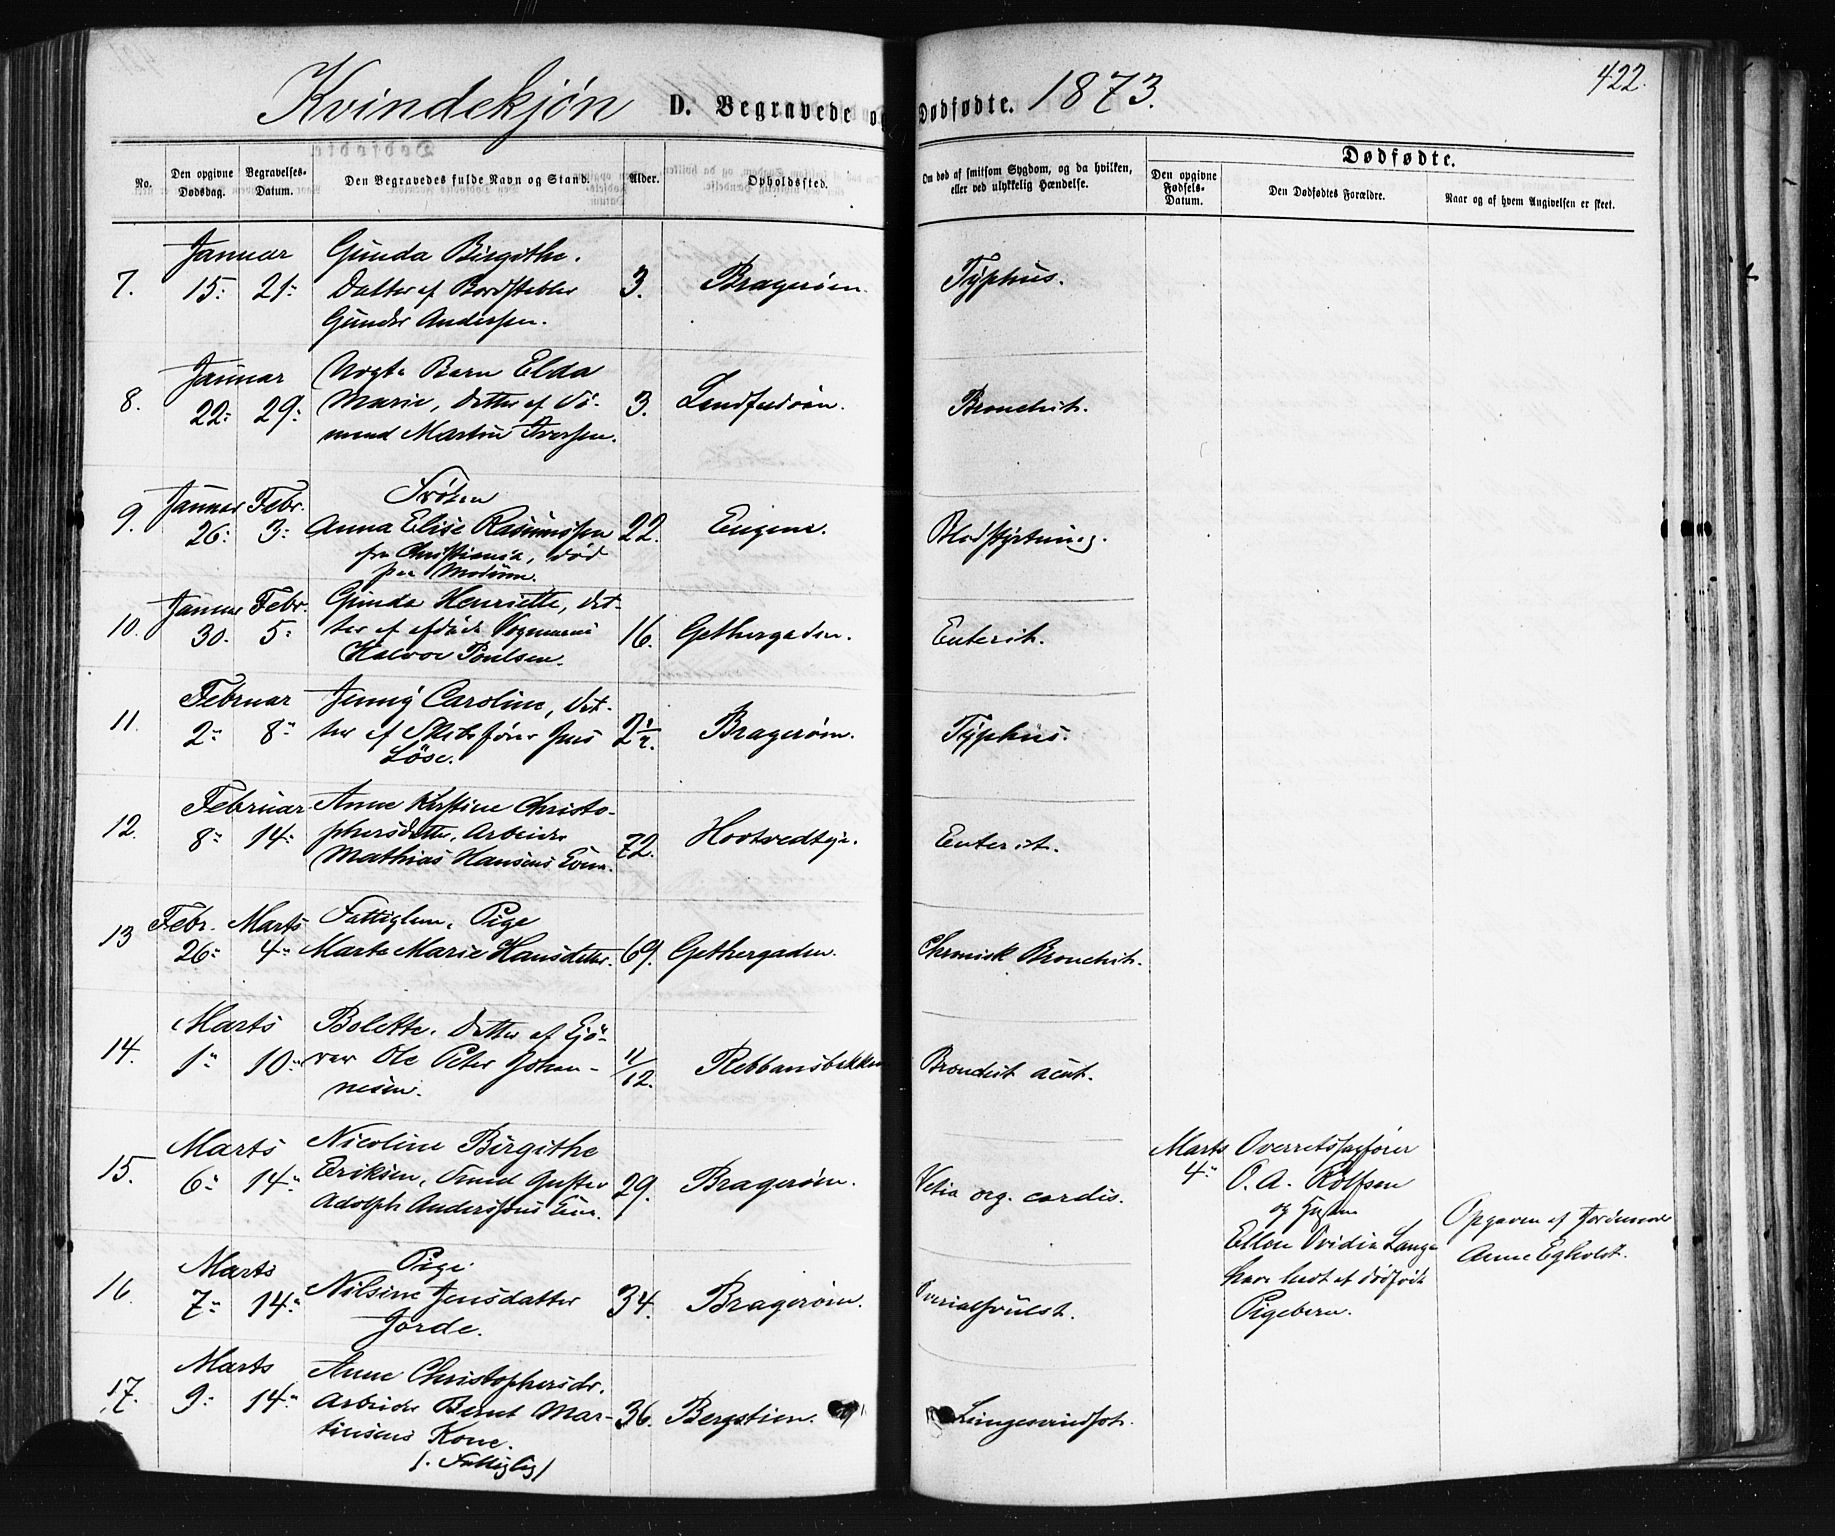 422.
Kvindekjøn D. Begravede og Dødfødte. 1873.
Dødfødte.
No.
Den opgivne Dødsdag.
Begravelses-Datum.
Den Begravedes fulde Navn og Stand.
Alder.
Opholdssted.
Om død af smitsom Sygdom, og da hvilken,
eller ved ulykkelig Hændelse.
Den opgivne Fødsels-Datum.
Den Dødfødtes Forældre.
Naar og af hvem Angivelsen er skeet.
Januar Gunda Birgithe.
7. 15: 21: Datter af Bordstabler 3. Bragerøen. Typhus.
Gunder Andersen.
Januar Barn Elda
8. 22: 29: Marie, Datter af Sø- 3. Bronchit.
mand Martin Iversen.
Januar Febr. Frøken
9. 26: 3: Anna Elise Rasmussen 22. Engene. Blodstyrtning.
fra Christiania, død
paa Modum.
Januar Febr. Gunda Henriette, Dat-
10. 30. 5: ter af afdøde Vognmand 16. Gethergaden. Enterit.
Halvor Poulsen.
Februar Jenny Caroline, Dat-
11. 2: 8: ter af Skibsfører Jens 2½. Bragerøen. Typhus.
Löse.
Februar Anne Kirstine Christo-
12. 8: 14: phersdatter, Arbeider 72. Enterit.
Mathias Hansens Enke.
Febr. Marts Fattiglem, Pige
13 26: 4: Marte Marie Hansdatter. 69. Gethergaden. Chronisk Bronchit.
Marts Bolette, Datter af Gjö-
14. 1: 10: rer Ole Peter Johan- 11/12. Rebbansbakken Bronchit acut.
nesen.
Marts Nicoline Birgithe
15. 6: 14: Eriksen, Smed Gustav 29. Bragerøen. Vitia org. cordis.
Adolph Anderssons
Marts Overretssagfører
4: O. A. Rolfsen
og Hustru
Ellen Ovidia Lange
have havt et dødfødt
Pigebarn.
Opgaven af Jordemoder
Anne Egholdt.
Marts Pige
16. 7: 14: Nilsine Jensdatter 34. Bragerøen. Ovarialsvulst.
Jorde.
Marts Anne Christophersdr.
17. 9: 14: Arbeider Bernt Mar- 36. Bergstien. Lungesvindsot.
tinsens Kone.
/: Fattiglig/